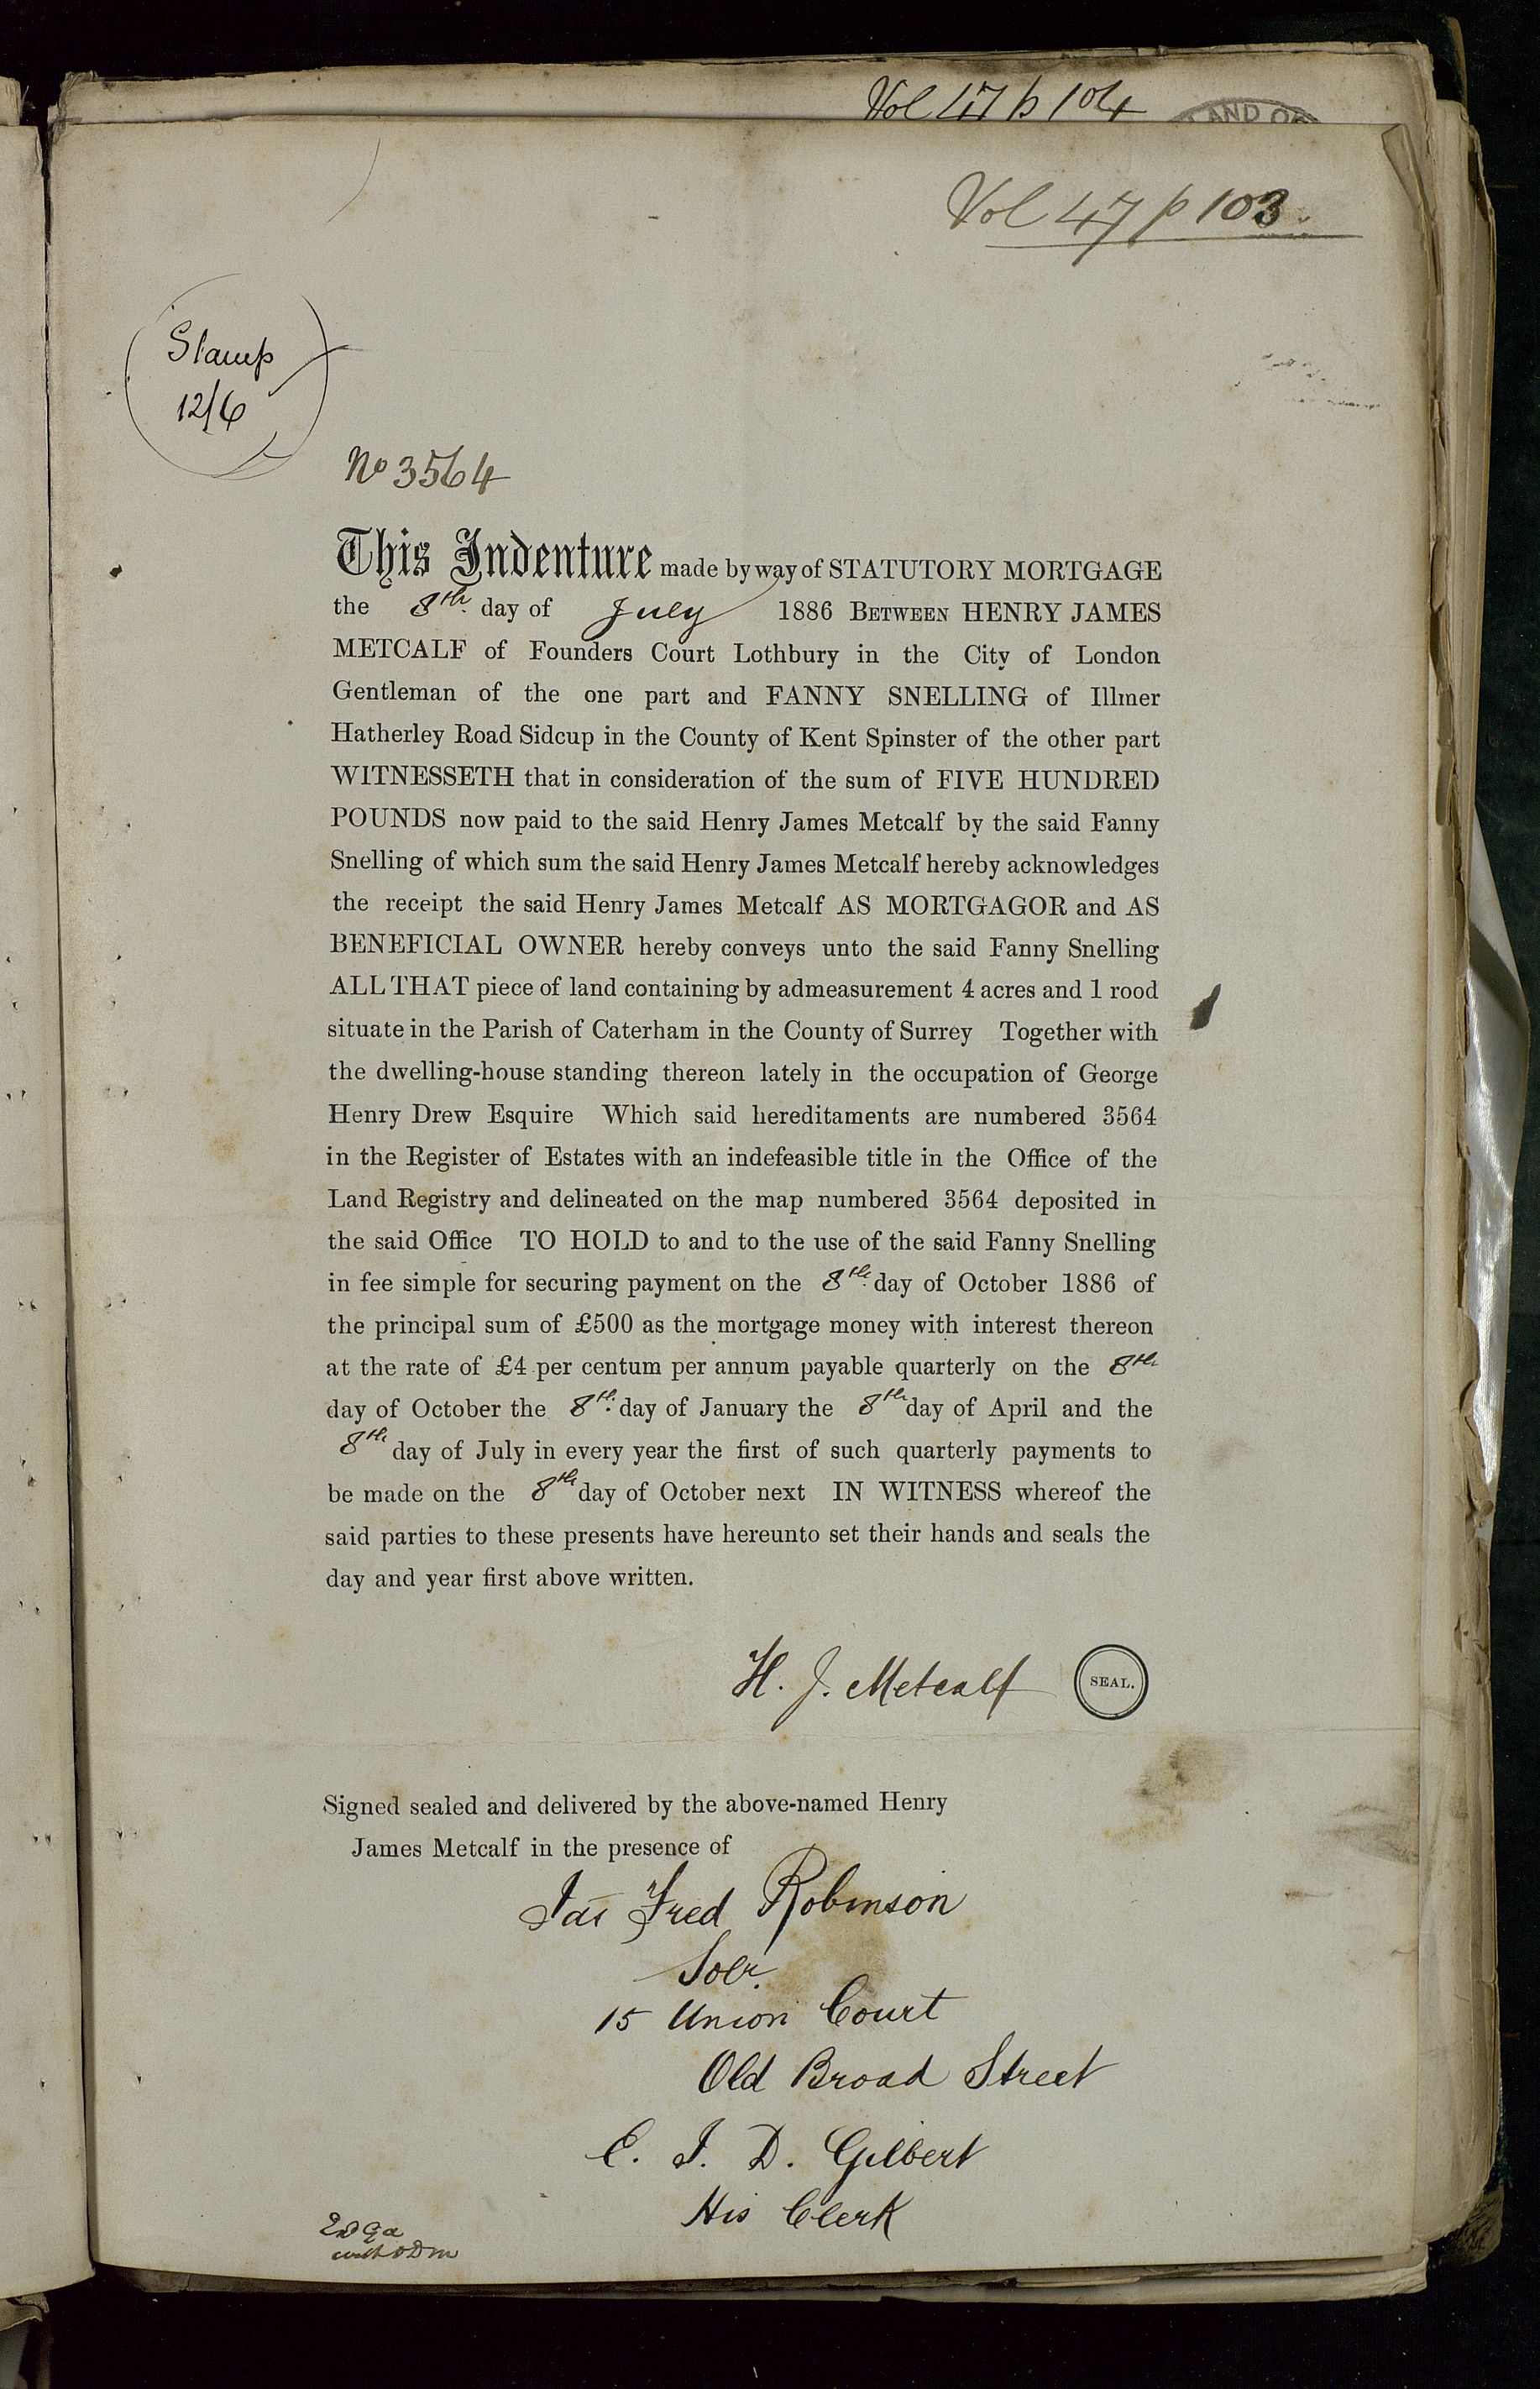 Vol 47 p 104
Vol 47 p 103
Stamp
12/6
No 3564
This Indenture made by way of STATUTORY MORTGAGE
the 8th day of July 1886 BETWEEN HENRY JAMES
METCALF of Founders Court Lothbury in the City of London
Gentleman of the one part and FANNY SNELLING of Illmer
Hatherley Road Sidcup in the County of Kent Spinster of the other part
WITNESSETH that in consideration of the sum of FIVE HUNDRED
POUNDS now paid to the said Henry James Metcalf by the said Fanny
Snelling of which sum the said Henry James Metcalf hereby acknowledges
the receipt the said Henry James Metcalf AS MORTGAGOR and AS
BENEFICIAL OWNER hereby conveys unto the said Fanny Snelling
ALL THAT piece of land containing by admeasurement 4 acres and 1 rood
situate in the Parish of Caterham in the County of Surrey Together with
the dwelling-house standing thereon lately in the occupation of George
Henry Drew Esquire Which said hereditaments are numbered 3564
in the Register of Estates with an indefeasible title in the Office of the
Land Registry and delineated on the map numbered 3564 deposited in
the said Office TO HOLD to and to the use of the said Fanny Snelling
in fee simple for securing payment on the 8th day of October 1886 of
the principal sum of £500 as the mortgage money with interest thereon
at the rate of £4 per centum per annum payable quarterly on the 8th
day of October the 8th day of January the 8th day of April and the
8th day of July in every year the first of such quarterly payments to
be made on the 8th day of October next IN WITNESS whereof the
said parties to these presents have hereunto set their hands and seals the
day and year first above written.
H. J. Metcalf SEAL.
Signed sealed and delivered by the above-named Henry
James Metcalf in the presence of
Jas Fred Robinson
Solr.
15 Union Court
Old Broad Street
C. J. D. Gilbert
His Clerk